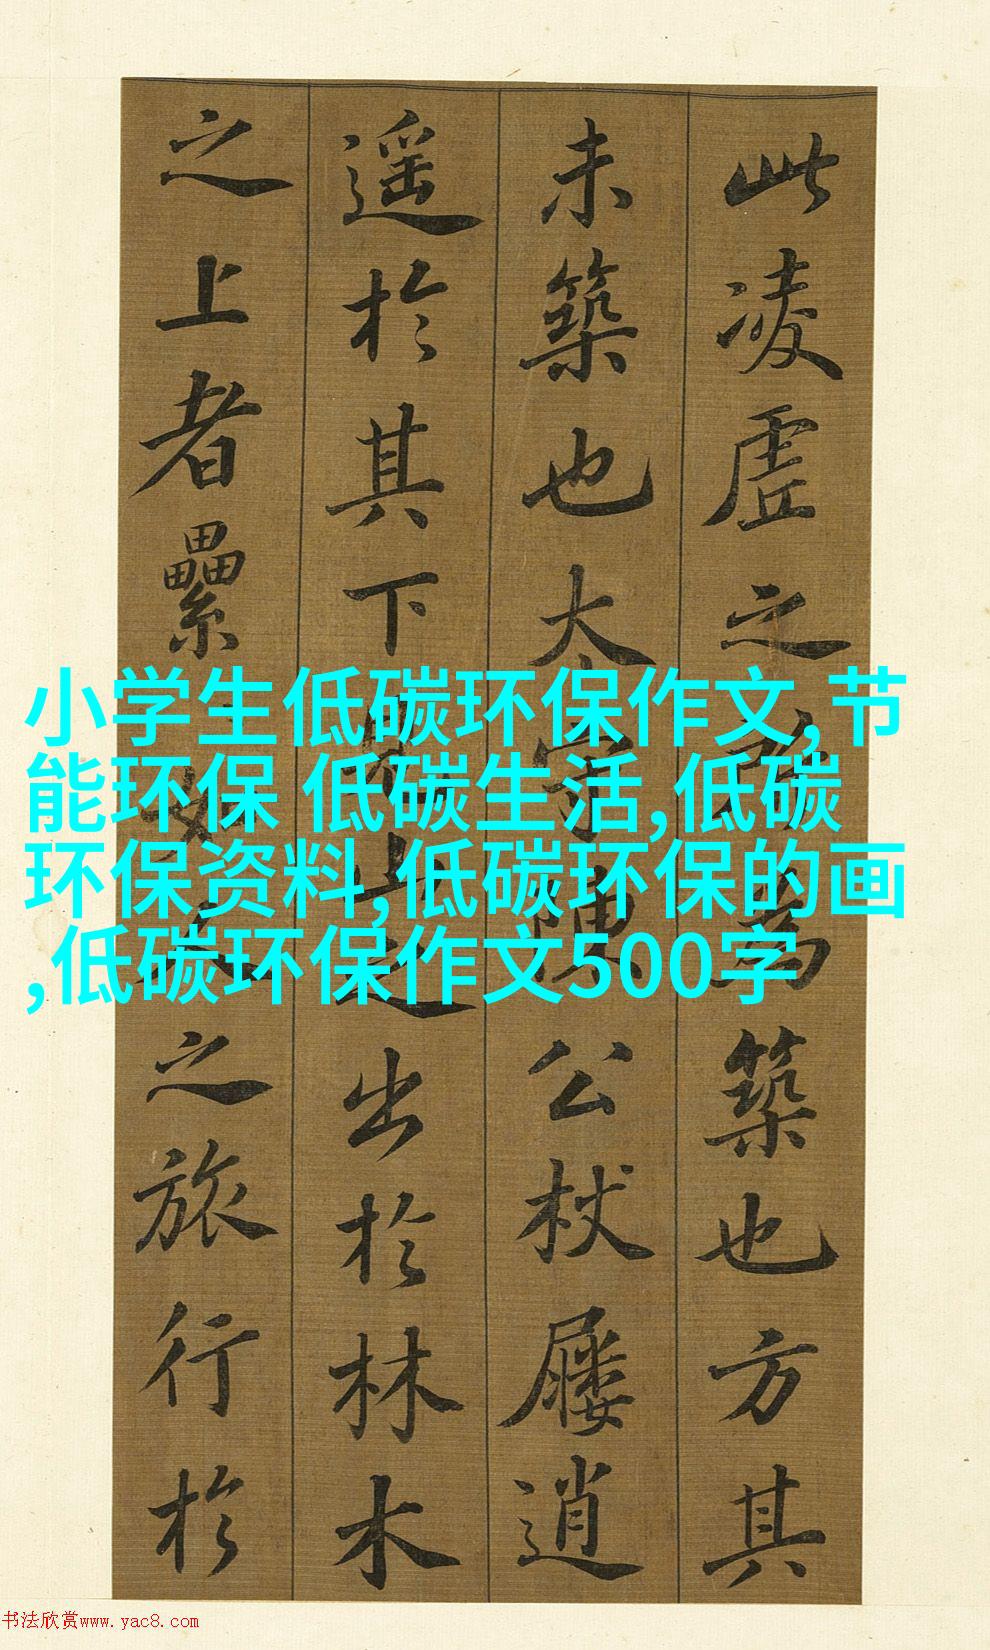 此凌虗之所為築也方其
未築也太守陳公杖屨逍
遥於其下見山之出於林木
之上者纍如人之旅行於
小学生低碳环保作文,节
能环保 低碳生活,低碳
环保资料,低碳环保的画
,低碳环保作文500字
书法欣赏www.yac8.com